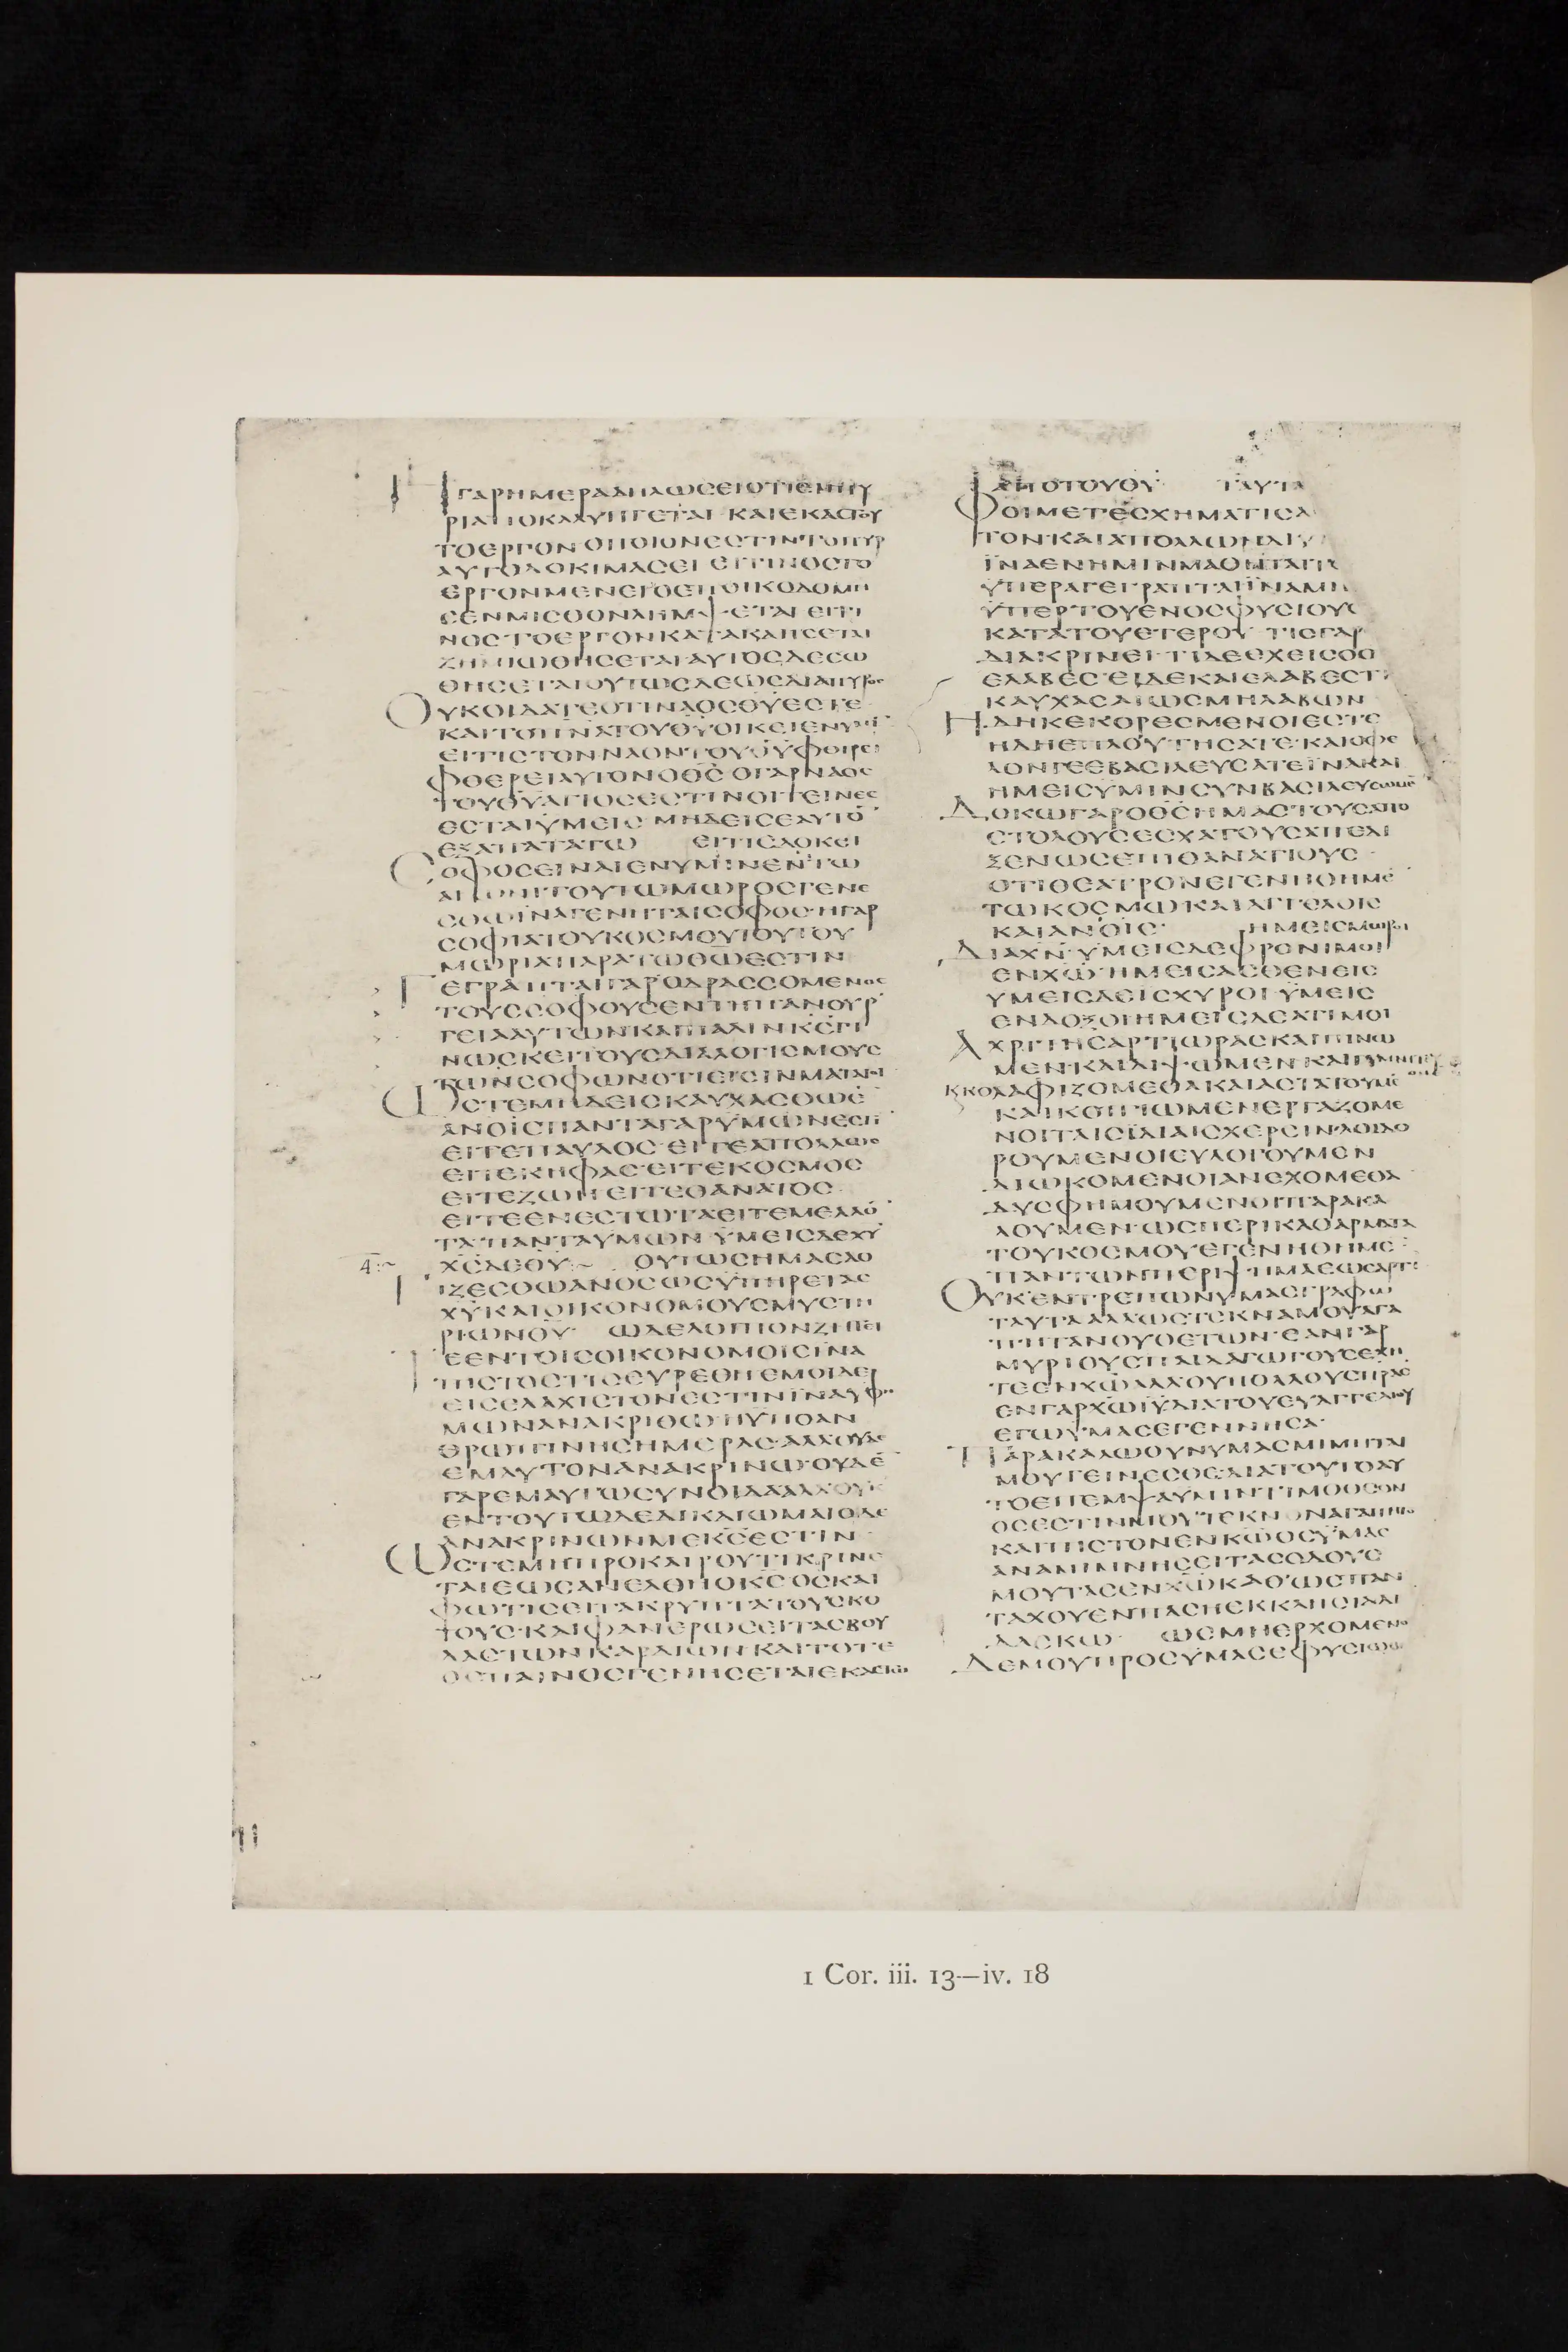 ΗΓΑΡΗΜΕΡΑΔΗΛΩΣΕΙΟΤΙΕΝΠΥ
ΡΙΑΠΟΚΑΛΥΠΤΕΤΑΙ ΚΑΙΕΚΑΣΤΟΥ
ΤΟΕΡΓΟΝΟΠΟΙΟΝΕΣΤΙΝΤΟΠΥΡ
ΑΥΤΟΔΟΚΙΜΑΣΕΙ ΕΙΤΙΝΟΣΤΟ
ΕΡΓΟΝΜΕΝΕΙΟΕΠΟΙΚΟΔΟΜΗ
ΣΕΝΜΙΣΘΟΝΛΗΜΨΕΤΑΙ ΕΙΤΙ
ΝΟΣΤΟΕΡΓΟΝΚΑΤΑΚΑΗΣΕΤΑΙ
ΖΗΜΙΩΘΗΣΕΤΑΙΑΥΤΟΣΔΕΣΩ
ΘΗΣΕΤΑΙΟΥΤΩΣΔΕΩΣΔΙΑΠΥΡΟΣ
ΟΥΚΟΙΔΑΤΕΟΤΙΝΑΟΣΘΥΕΣΤΕ
ΚΑΙΤΟΠΝΑΤΟΥΘΥΟΙΚΕΙΕΝΥΜΙ
ΕΙΤΙΣΤΟΝΝΑΟΝΤΟΥΘΥΦΘΙΡΕΙ
ΦΘΕΡΕΙΑΥΤΟΝΟΘΣ ΟΓΑΡΝΑΟΣ
ΤΟΥΘΥΑΓΙΟΣΕΣΤΙΝΟΙΤΕΙΝΕΣ
ΕΣΤΑΙΫΜΕΙΣ ΜΗΔΕΙΣΕΑΥΤΟ
ΕΞΑΠΑΤΑΤΩ ΕΙΤΙΣΔΟΚΕΙ
ΣΟΦΟΣΕΙΝΑΙΕΝΥΜΙΝΕΝΤΩ
ΑΙΩΝΙΤΟΥΤΩΜΩΡΟΣΓΕΝΕ
ΣΘΩΪΝΑΓΕΝΗΤΑΙΣΟΦΟΣ·ΗΓΑΡ
ΣΟΦΙΑΤΟΥΚΟΣΜΟΥΤΟΥΤΟΥ
ΜΩΡΙΑΠΑΡΑΤΩΘΩΕΣΤΙΝ
ΓΕΓΡΑΠΤΑΙΓΑΡΟΔΡΑΣΣΟΜΕΝΟΣ
ΤΟΥΣΣΟΦΟΥΣΕΝΤΗΠΑΝΟΥΡ
ΓΕΙΑΑΥΤΩΝΚΑΙΠΑΛΙΝΚΣΓΙ
ΝΩΣΚΕΙΤΟΥΣΔΙΑΛΟΓΙΣΜΟΥΣ
ΤΩΝΣΟΦΩΝΟΤΙΕΙΣΙΝΜΑΤΑΙΟΙ
ΩΣΤΕΜΗΔΕΙΣΚΑΥΧΑΣΘΩΕ
ΑΝΟΙΣΠΑΝΤΑΓΑΡΫΜΩΝΕΣΤΙ
ΕΙΤΕΠΑΥΛΟΣ·ΕΙΤΕΑΠΟΛΛΩΣ
ΕΙΤΕΚΗΦΑΣ·ΕΙΤΕΚΟΣΜΟΣ
ΕΙΤΕΖΩΗΕΙΤΕΘΑΝΑΤΟΣ
ΕΙΤΕΕΝΕΣΤΩΤΑΕΙΤΕΜΕΛΛΟ
ΤΑΠΑΝΤΑΥΜΩΝ ΫΜΕΙΣΔΕΧΥ
ΧΣΔΕΘΥ:~ ΟΥΤΩΣΗΜΑΣΛΟ
ΓΙΖΕΣΘΩΑΝΟΣΩΣΥΠΗΡΕΤΑΣ
ΧΥΚΑΙΟΙΚΟΝΟΜΟΥΣΜΥΣΤΗ
ΡΙΩΝΘΥ· ΩΔΕΛΟΙΠΟΝΖΗΤΕΙ
ΤΕΕΝΤΟΙΣΟΙΚΟΝΟΜΟΙΣΙΝΑ
ΠΙΣΤΟΣΤΙΣΕΥΡΕΘΗΕΜΟΙΔΕ
ΕΙΣΕΛΑΧΙΣΤΟΝΕΣΤΙΝΪΝΑΥΦΥ
ΜΩΝΑΝΑΚΡΙΘΩΗΫΠΟΑΝ
ΘΡΩΠΙΝΗΣΗΜΕΡΑΣ·ΑΛΛΟΥΔΕ
ΕΜΑΥΤΟΝΑΝΑΚΡΙΝΩ·ΟΥΔΕ
ΓΑΡΕΜΑΥΤΩΣΥΝΟΙΔΑΑΛΛΟΥΚ
ΕΝΤΟΥΤΩΔΕΔΙΚΑΙΩΜΑΙΟΔΕ
ΑΝΑΚΡΙΝΩΝΜΕΚΣΕΣΤΙΝ
ΩΣΤΕΜΗΠΡΟΚΑΙΡΟΥΤΙΚΡΙΝΕ
ΤΑΙΕΩΣΑΝΕΛΘΗΟΚΣ ΟΣΚΑΙ
ΦΩΤΙΣΕΙΤΑΚΡΥΠΤΑΤΟΥΣΚΟ
ΤΟΥΣ·ΚΑΙΦΑΝΕΡΩΣΕΙΤΑΣΒΟΥ
ΛΑΣΤΩΝΚΑΡΔΙΩΝΚΑΙΤΟΤΕ
ΟΕΠΑΙΝΟΣΓΕΝΗΣΕΤΑΙΕΚΑΣΤΩ
ΑΠΟΤΟΥΘΥ· ΤΑΥΤΑ
ΦΟΙΜΕΤΕΣΧΗΜΑΤΙΣΑ
ΤΟΝΚΑΙΑΠΟΛΛΩΝΔΙΥ
ΪΝΑΕΝΗΜΙΝΜΑΘΗΤΑΙΤΑ
ΫΠΕΡΑΓΕΓΡΑΠΤΑΙΪΝΑΜΗ
ΫΠΕΡΤΟΥΕΝΟΣΦΥΣΙΟΥΣ
ΚΑΤΑΤΟΥΕΤΕΡΟΥ ΤΙΣΓΑΡ
ΔΙΑΚΡΙΝΕΙ·ΤΙΔΕΕΧΕΙΣΟΟ
ΕΛΑΒΕΣ·ΕΙΔΕΚΑΙΕΛΑΒΕΣΤ
ΚΑΥΧΑΣΑΙΩΣΜΗΛΑΒΩΝ
ΗΔΗΚΕΚΟΡΕΣΜΕΝΟΙΕΣΤΕ
ΗΔΗΕΠΛΟΥΤΗΣΑΤΕ·ΚΑΙΟΦΕ
ΛΟΝΓΕΕΒΑΣΙΛΕΥΣΑΤΕΪΝΑΚΑΙ
ΗΜΕΙΣΥΜΙΝΣΥΝΒΑΣΙΛΕΥΣΩΜΕ
ΔΟΚΩΓΑΡΟΘΣΗΜΑΣΤΟΥΣΑΠΟ
ΣΤΟΛΟΥΣΕΣΧΑΤΟΥΣΑΠΕΔΙ
ΞΕΝΩΣΕΠΙΘΑΝΑΤΙΟΥΣ
ΟΤΙΘΕΑΤΡΟΝΕΓΕΝΗΘΗΜΕ
ΤΩΚΟΣΜΩΚΑΙΑΓΓΕΛΟΙΣ
ΚΑΙΑΝΟΙΣ· ΗΜΕΙΣΜΩΡΟΙ
ΔΙΑΧΝ·ΥΜΕΙΣΔΕΦΡΟΝΙΜΟΙ
ΕΝΧΩ·ΗΜΕΙΣΑΣΘΕΝΕΙΣ
ΥΜΕΙΣΔΕΙΣΧΥΡΟΙ·ΫΜΕΙΣ
ΕΝΔΟΞΟΙΗΜΕΙΣΔΕΑΤΙΜΟΙ
ΑΧΡΙΤΗΣΑΡΤΙΩΡΑΣΚΑΙΠΙΝΩ
ΜΕΝ·ΚΑΙΔΙΨΩΜΕΝΚΑΙΓΥΜΝΙΤΕΥ
ΚΚΟΛΑΦΙΖΟΜΕΘΑΚΑΙΑΣΤΑΤΟΥΜΕ
ΚΑΙΚΟΠΙΩΜΕΝΕΡΓΑΖΟΜΕ
ΝΟΙΤΑΙΣΙΔΙΑΙΣΧΕΡΣΙΝ·ΛΟΙΔΟ
ΡΟΥΜΕΝΟΙΕΥΛΟΓΟΥΜΕΝ
ΔΙΩΚΟΜΕΝΟΙΑΝΕΧΟΜΕΘΑ
ΔΥΣΦΗΜΟΥΜΕΝΟΙΠΑΡΑΚΑ
ΛΟΥΜΕΝ·ΩΣΠΕΡΙΚΑΘΑΡΜΑΤΑ
ΤΟΥΚΟΣΜΟΥΕΓΕΝΗΘΗΜΕ
ΠΑΝΤΩΝΠΕΡΙΨΗΜΑΕΩΣΑΡΤΙ
ΟΥΚΕΝΤΡΕΠΩΝΥΜΑΣΓΡΑΦΩ
ΤΑΥΤΑΑΛΛΩΣΤΕΚΝΑΜΟΥΑΓΑ
ΠΗΤΑΝΟΥΘΕΤΩΝ·ΕΑΝΓΑΡ
ΜΥΡΙΟΥΣΠΑΙΔΑΓΩΓΟΥΣΕΧΗ
ΤΕΕΝΧΩΑΛΛΟΥΠΟΛΛΟΥΣΠΡΑΣ
ΕΝΓΑΡΧΩΙΥΔΙΑΤΟΥΕΥΑΓΓΕΛΙΟΥ
ΕΓΩΥΜΑΣΕΓΕΝΝΗΣΑ·
ΠΑΡΑΚΑΛΩΟΥΝΥΜΑΣΜΙΜΗΤΑΙ
ΜΟΥΓΕΙΝΕΣΘΕ·ΔΙΑΤΟΥΤΟΑΥ
ΤΟΕΠΕΜΨΑΥΜΙΝΤΙΜΟΘΕΟΝ
ΟΣΕΣΤΙΝΜΟΥΤΕΚΝΟΝΑΓΑΠΗΤΟ
ΚΑΙΠΙΣΤΟΝΕΝΚΩΟΣΥΜΑΣ
ΑΝΑΜΙΜΝΗΣΕΙΤΑΣΟΔΟΥΣ
ΜΟΥΤΑΣΕΝΧΩΚΑΘΩΣΠΑΝ
ΤΑΧΟΥΕΝΠΑΣΗΕΚΚΛΗΣΙΑΔΙ
ΔΑΣΚΩ· ΩΣΜΗΕΡΧΟΜΕΝΟ
ΔΕΜΟΥΠΡΟΣΥΜΑΣΕΦΥΣΙΩΘΗ
1 Cor. iii. 13—iv. 18